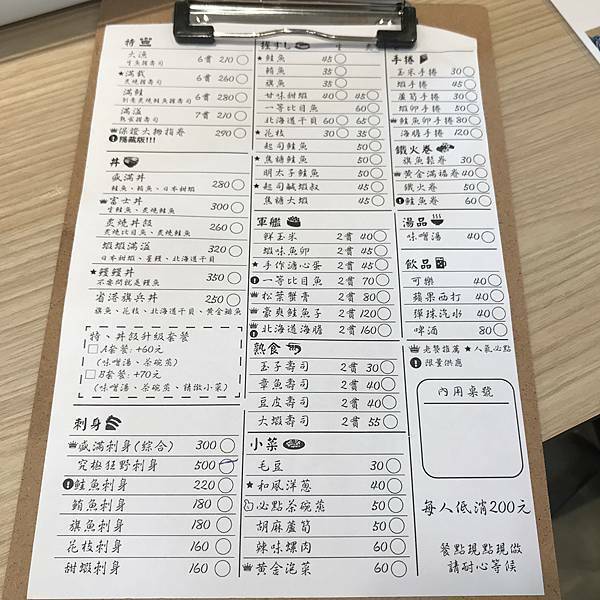 特
大漁 6貫 210
生魚握壽司
★滿載 6貫 260
炙燒握壽司
滿鮭 6貫 280
滿溢 7貫 210
熟食握壽司
保證大物捲卷 290
隱藏版!!!
丼
盛滿丼 280
鮭魚、鮪魚、日本甜蝦
富士丼 300
生鮭魚、炙燒鮭魚
炙燒丼飯 260
炙燒比目魚、炙燒鮭魚
蝦蝦滿溢 320
日本甜蝦、星鰻、北海道干貝
★鰻鰻丼 350
不要問就是鰻魚
省港旗兵丼 250
旗魚、花枝、北海道干貝、黃金鯡魚
特、丼飯升級套餐
A套餐:+60元
(味噌湯、茶碗蒸)
B套餐:+70元
(味噌湯、茶碗蒸、精緻小菜)
刺身
盛滿刺身(綜合) 300
究極狂野刺身 500
鮭魚刺身 220
鮪魚刺身 180
旗魚刺身 180
花枝刺身 160
甜蝦刺身 160
握すし 生 炙
★鮭魚 45
鮪魚 35
旗魚 35
甘味甜蝦 40 45
一等比目魚 60
北海道干貝 60 65
★花枝 30 35
起司鮭魚 45
★焦糖鮭魚 45
明太子鮭魚 45
★起司鹹蝦叔 45
焦糖大蝦 45
軍艦
鮮玉米 2貫 40
蝦味魚卵 2貫 45
★手作溏心蛋 2貫 45
一等比目魚 2貫 70
松葉蟹膏 2貫 80
豪爽鮭魚子 2貫 120
北海道海膽 2貫 160
熟食
玉子壽司 2貫 30
章魚壽司 2貫 40
豆皮壽司 2貫 40
大蝦壽司 2貫 55
小菜
毛豆 30
★和風洋蔥 40
必點茶碗蒸 50
胡麻蘆筍 50
辣味螺肉 60
黃金泡菜 60
手捲
玉米手捲 30
蝦手捲 45
蘆筍手捲 40
蝦卵手捲 50
鮭魚卵手捲 80
海膽手捲 120
鐵火卷
旗魚鬆卷 30
黃金滿福卷 40
鐵火卷 50
鮭魚卷 50
湯品
味噌湯 40
飲品
可樂 40
蘋果西打 40
彈珠汽水 40
啤酒 80
老饕推薦 ★人氣必點
限量供應
內用桌號
每人低消200元
餐點現點現做
請耐心等候